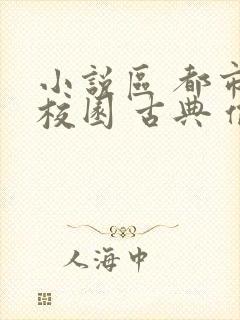 小說區 都市
校園 古典
人海中